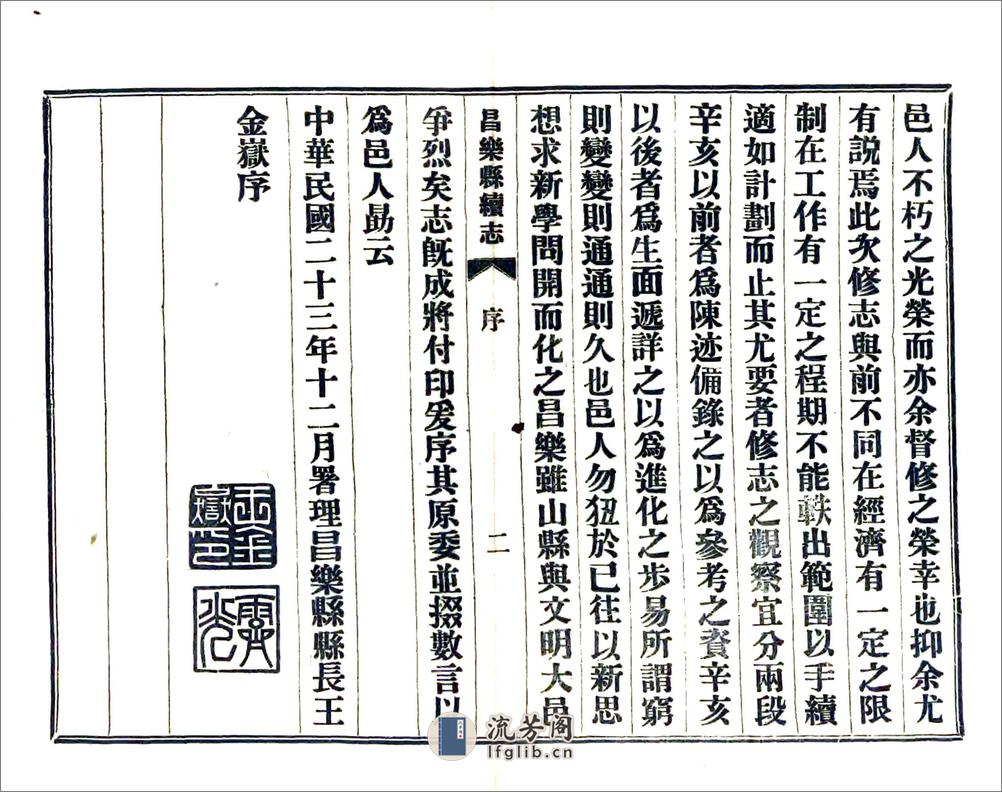 邑人不朽之光榮而亦余督修之榮幸也抑余尤
有說焉此次修志與前不同在經濟有一定之限
制在工作有一定之程期不能軼出範圍以手續
適如計劃而止其尤要者修志之觀察宜分兩段
辛亥以前者爲陳迹備錄之以爲參考之資辛亥
以後者爲生面遞詳之以爲進化之步易所謂窮
則變變則通通則久也邑人勿狃於已往以新思
想求新學問開而化之昌樂雖山縣與文明大邑
昌樂縣續志 序 二
爭烈矣志旣成將付印爰序其原委並掇數言以
爲邑人勗云
中華民國二十三年十二月署理昌樂縣縣長王
金嶽序
王金嶽印
流芳阁
lfglib.cn